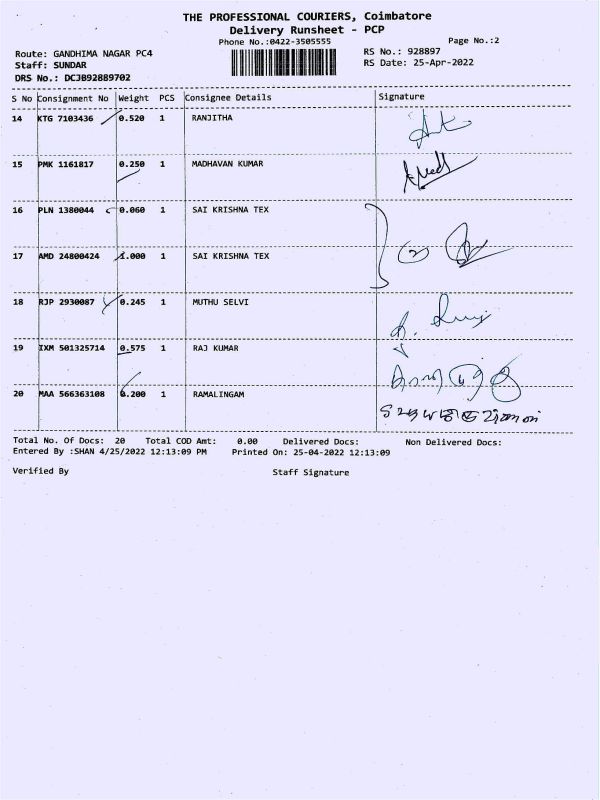 THE PROFESSIONAL COURIERS, Coimbatore
Delivery Runsheet - PCP
Phone No.:0422-3505555 Page No.:2
Route: GANDHIMA NAGAR PC4 RS No.: 928897
Staff: SUNDAR RS Date: 25-Apr-2022
DRS No.: DCJB92889702
S No Consignment No Weight PCS Consignee Details Signature
14 KTG 7103436 0.520 1 RANJITHA
15 PMK 1161817 0.250 1 MADHAVAN KUMAR
16 PLN 1380044 0.060 1 SAI KRISHNA TEX
17 AMD 24800424 1.000 1 SAI KRISHNA TEX
18 RJP 2930087 0.245 1 MUTHU SELVI
19 IXM 501325714 0.575 1 RAJ KUMAR
20 MAA 566363108 0.200 1 RAMALINGAM
Total No. Of Docs: 20 Total COD Amt: 0.00 Delivered Docs: Non Delivered Docs:
Entered By :SHAN 4/25/2022 12:13:09 PM Printed On: 25-04-2022 12:13:09
Verified By Staff Signature